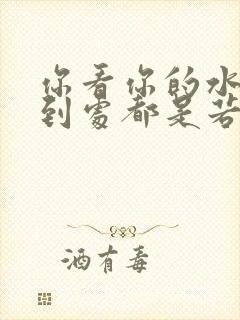 你看你的水
到處都是若
酒有毒